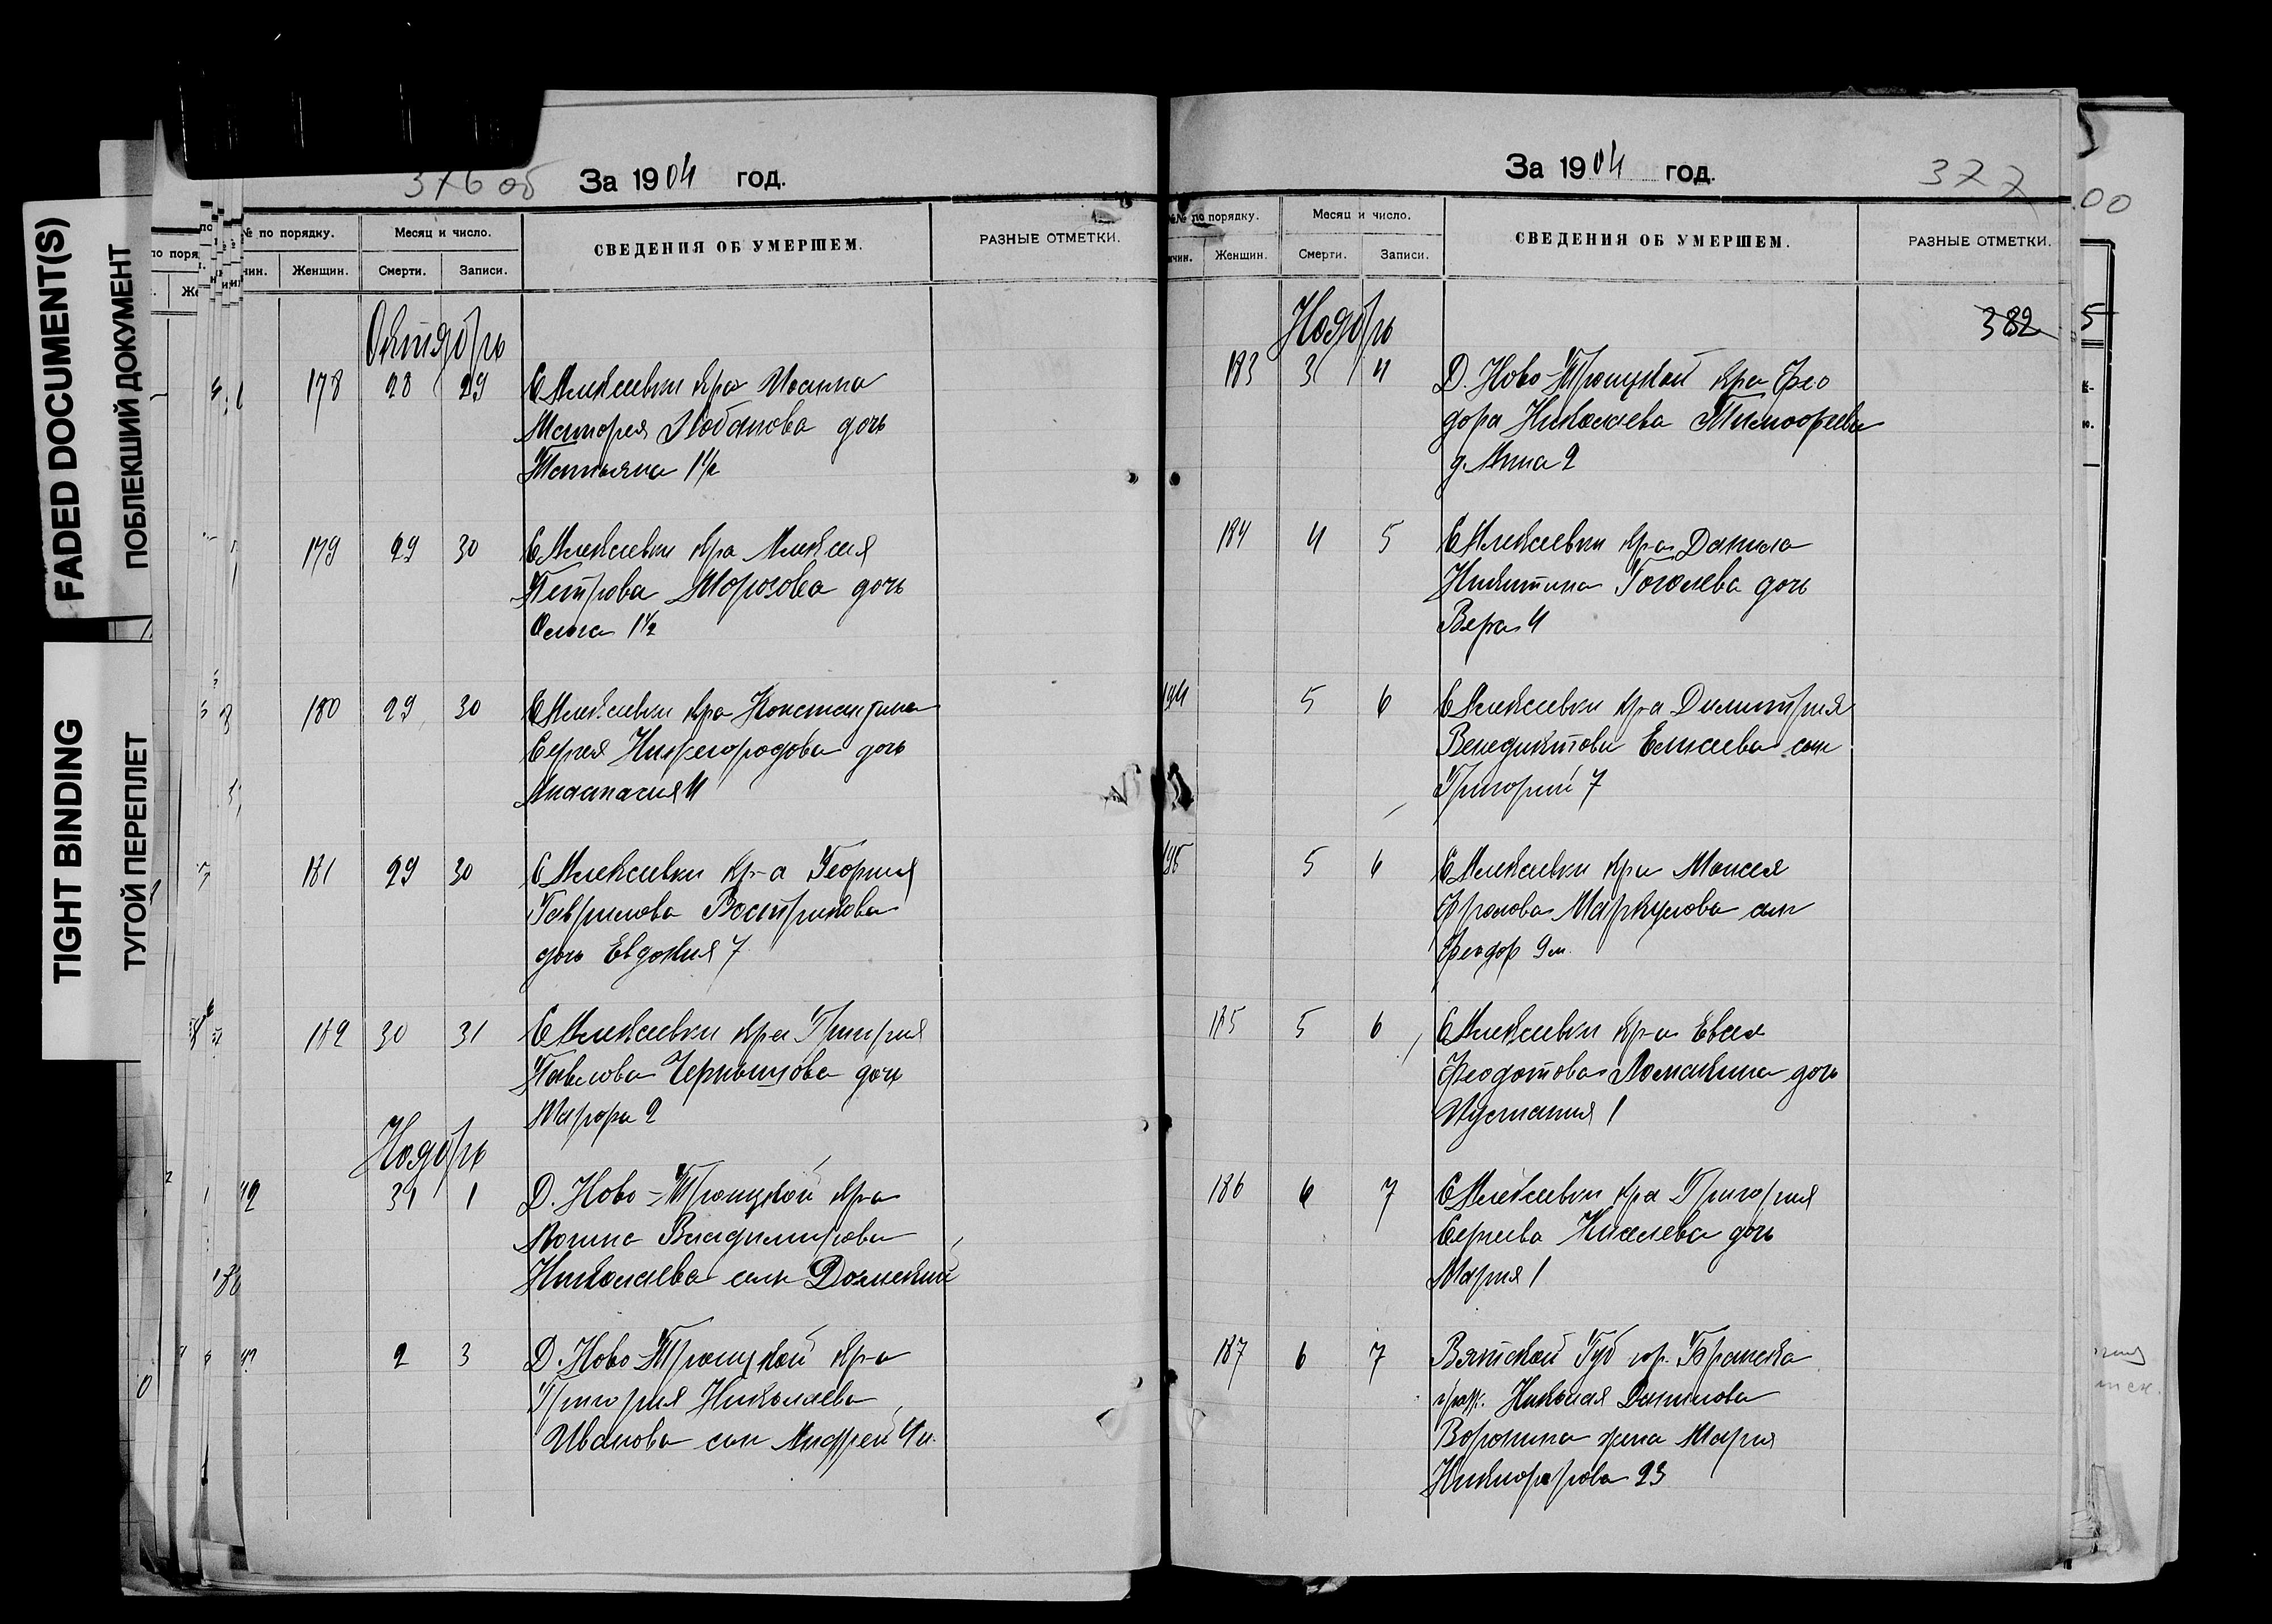 FADED DOCUMENT(S)
ПОБЛЕКШИЙ ДОКУМЕНТ
TIGHT BINDING
ТУГОЙ ПЕРЕПЛЕТ
376 об
За 1904 год.
№ по порядку.
Месяц и число.
СВЕДЕНИЯ ОБ УМЕРШЕМ.
РАЗНЫЕ ОТМЕТКИ.
Женщин.
Смерти.
Записи.
Октябрь
178 28 29 С Алексѣевки кр-а Иоанна
Лобанова дочь
Татьяна 1½
179 29 30 С Алексѣевки кр-а Алексѣя
Петрова Морозова дочь
Ольга 1½
180 29 30 С Алексѣевки кр-а Константина
Сергѣя Нижегородова дочь
Анастасия 4
181 29 30 С Алексѣевки кр-а Георгия
Гаврилова Вострикова
дочь Евдокия 7
182 30 31 С Алексѣевки кр-а Григория
Павлова Чернышова дочь
Марфа 2
Ноябрь
31 1 Д. Ново-Троицкой кр-а
Владимирова
Николаева сын
2 3 Д. Ново-Троицкой кр-а
Григория Николаева
Иванова сын Андрей 4 м.
За 1904 год.
377
№№ по порядку.
Месяц и число.
СВЕДЕНИЯ ОБ УМЕРШЕМ.
РАЗНЫЕ ОТМЕТКИ.
Женщин.
Смерти.
Записи.
382
Ноябрь
183 3 4 Д. Ново-Троицкой кр-а Фео
дора Николаева Тимофеева
д. Анна 2
184 4 5 С Алексѣевки кр-а Данила
Никитина Гоголева дочь
Вера 4
194 5 6 С Алексѣевки кр-а Димитрия
Венедиктова Елисеева сын
Григорий 7
195 5 6 С Алексѣевки кр-а Моисея
Фролова Маркулова сын
Феодор 9 м.
185 5 6 С Алексѣевки кр-а Евсея
Феодотова Ломакина дочь
1
186 6 7 С Алексѣевки кр-а Григория
Сергѣева Киселева дочь
Мария 1
187 6 7 Вятской Губ гор.
Николая Данилова
Воронина жена Мария
Никифорова 23